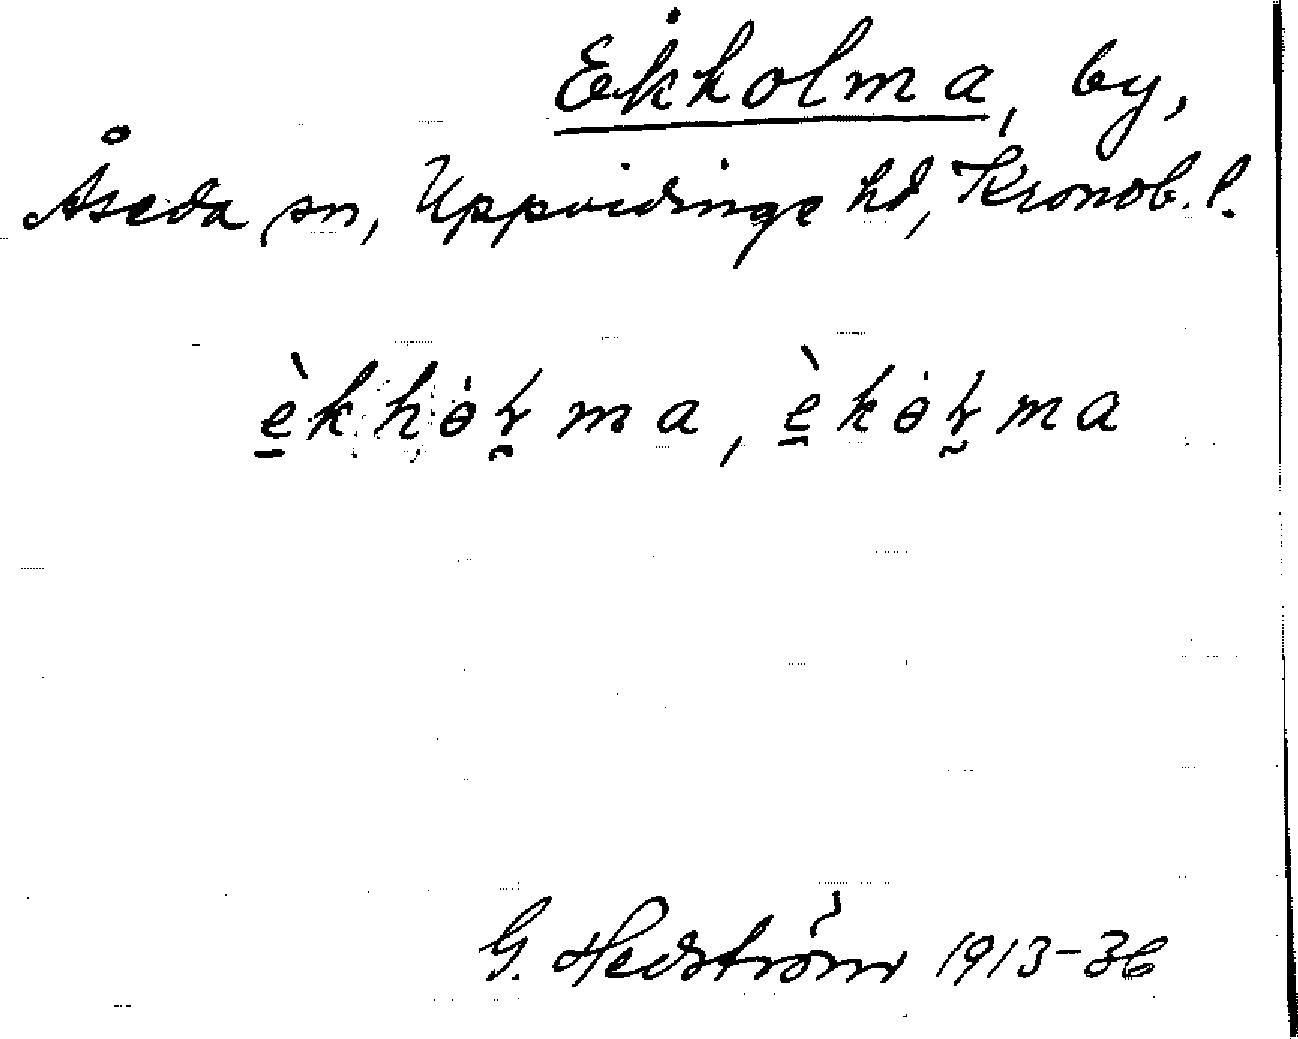 Ekholma, by,
Åseda sn, Uppvidinge hd, Kronob. l.
èkhòɫma, èkòɫma
G. Hedström 1913-36